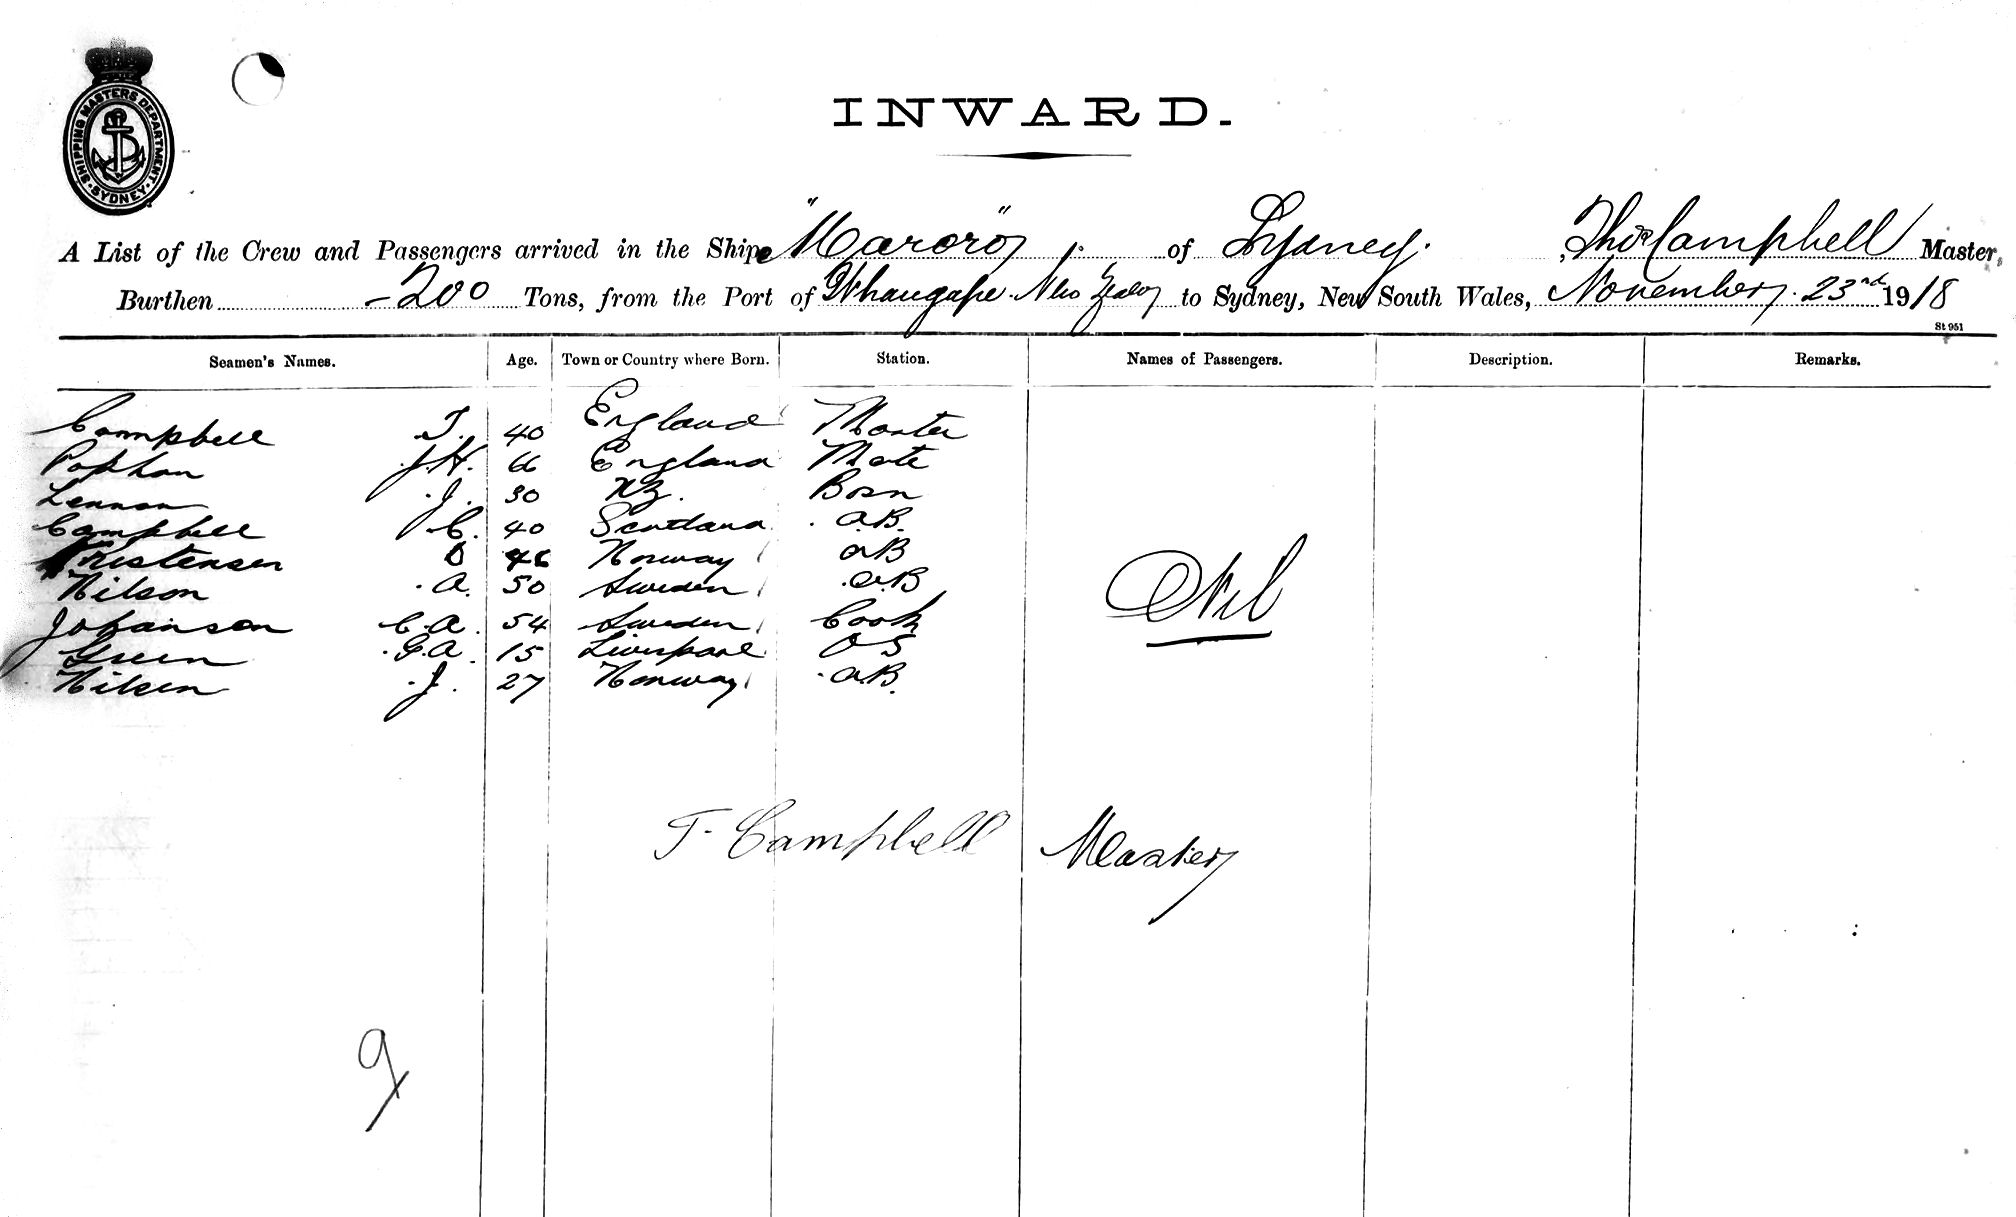 SHIPPING MASTERS DEPARTMENT · SYDNEY ·
INWARD.
A List of the Crew and Passengers arrived in the Ship "Maroro" of Sydney, Thos Campbell Master,
Burthen 200 Tons, from the Port of Whangape New Zealand to Sydney, New South Wales, November 23rd 1918
St 951
Seamen's Names. Age. Town or Country where Born. Station. Names of Passengers. Description. Remarks.
Campbell T. 40 England Master
Pophan J.H. 66 England Mate
Lennon J. 30 NZ. Bosn
Campbell C. 40 Scotland A.B.
Kristensen D 46 Norway A.B
Nilson A. 50 Sweden A.B
Johanson C.A. 54 Sweden Cook
Green G.A. 15 Liverpool O S
Nilsen J. 27 Norway A.B.
Nil
T. Campbell Master
9